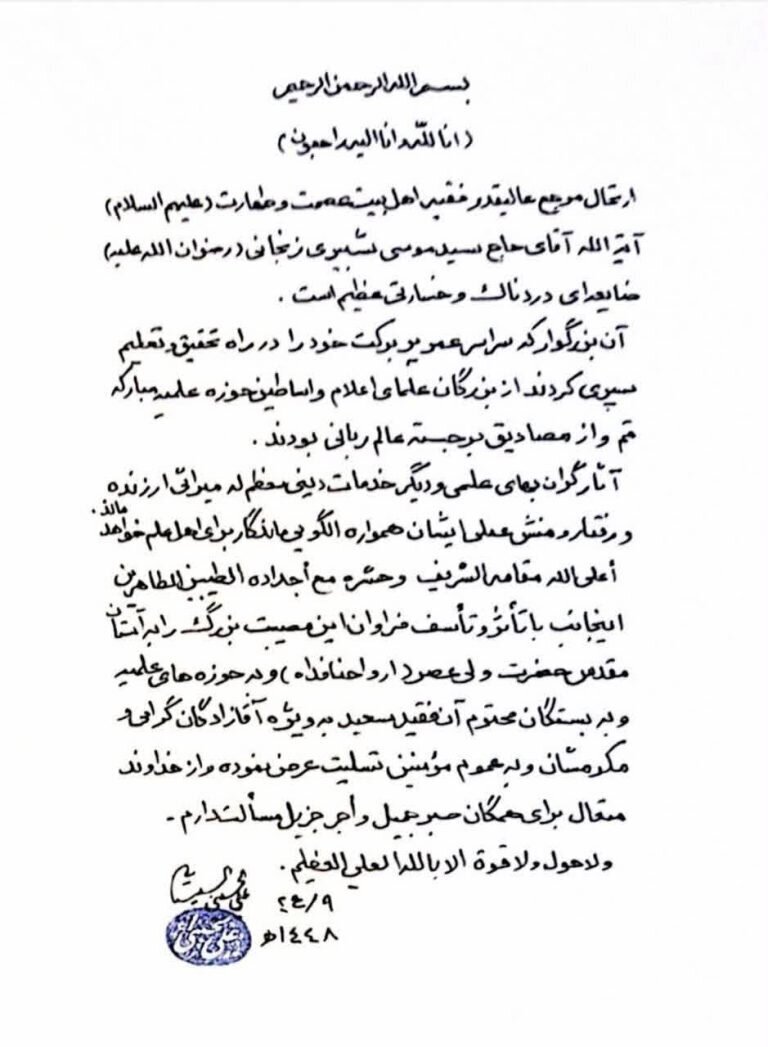 بسم الله الرحمن الرحیم
(انا للّه و انا الیه راجعون)
ارتحال مرجع عالیقدر فقیه اهل بیت عصمت و طهارت (علیهم السلام)
آیة الله آقای حاج سید موسی شبیری زنجانی (رضوان الله علیه)
ضایعه‌ای دردناک و خسارتی عظیم است .
آن بزرگوار که سراسر عمر پر برکت خود را در راه تحقیق و تعلیم
سپری کردند از بزرگان علمای اعلام و اساطین حوزه علمیه مبارکه
قم و از مصادیق برجسته عالم ربانی بودند .
آثار گران بهای علمی و دیگر خدمات دینی معظم له میراثی ارزنده
و رفتار و منش عملی ایشان همواره الگویی ماندگار برای اهل علم خواهد ماند .
أعلی الله مقامه الشریف و حشره مع أجداده الطیبین الطاهرین
اینجانب با تأثر و تأسف فراوان این مصیبت بزرگ را به آستان
مقدس حضرت ولی عصر (ارواحنا فداه) و به حوزه های علمیه
و به بستگان محترم آن فقید سعید به ویژه آقازادگان گرامی و
مکرمشان و به عموم مؤمنین تسلیت عرض نموده و از خداوند
متعال برای همگان صبر جمیل و أجر جزیل مسألت دارم .
ولا حول ولا قوة الا بالله العلي العظیم .
علي الحسیني السیستاني
٢٤/٩
١٤٤٨هـ